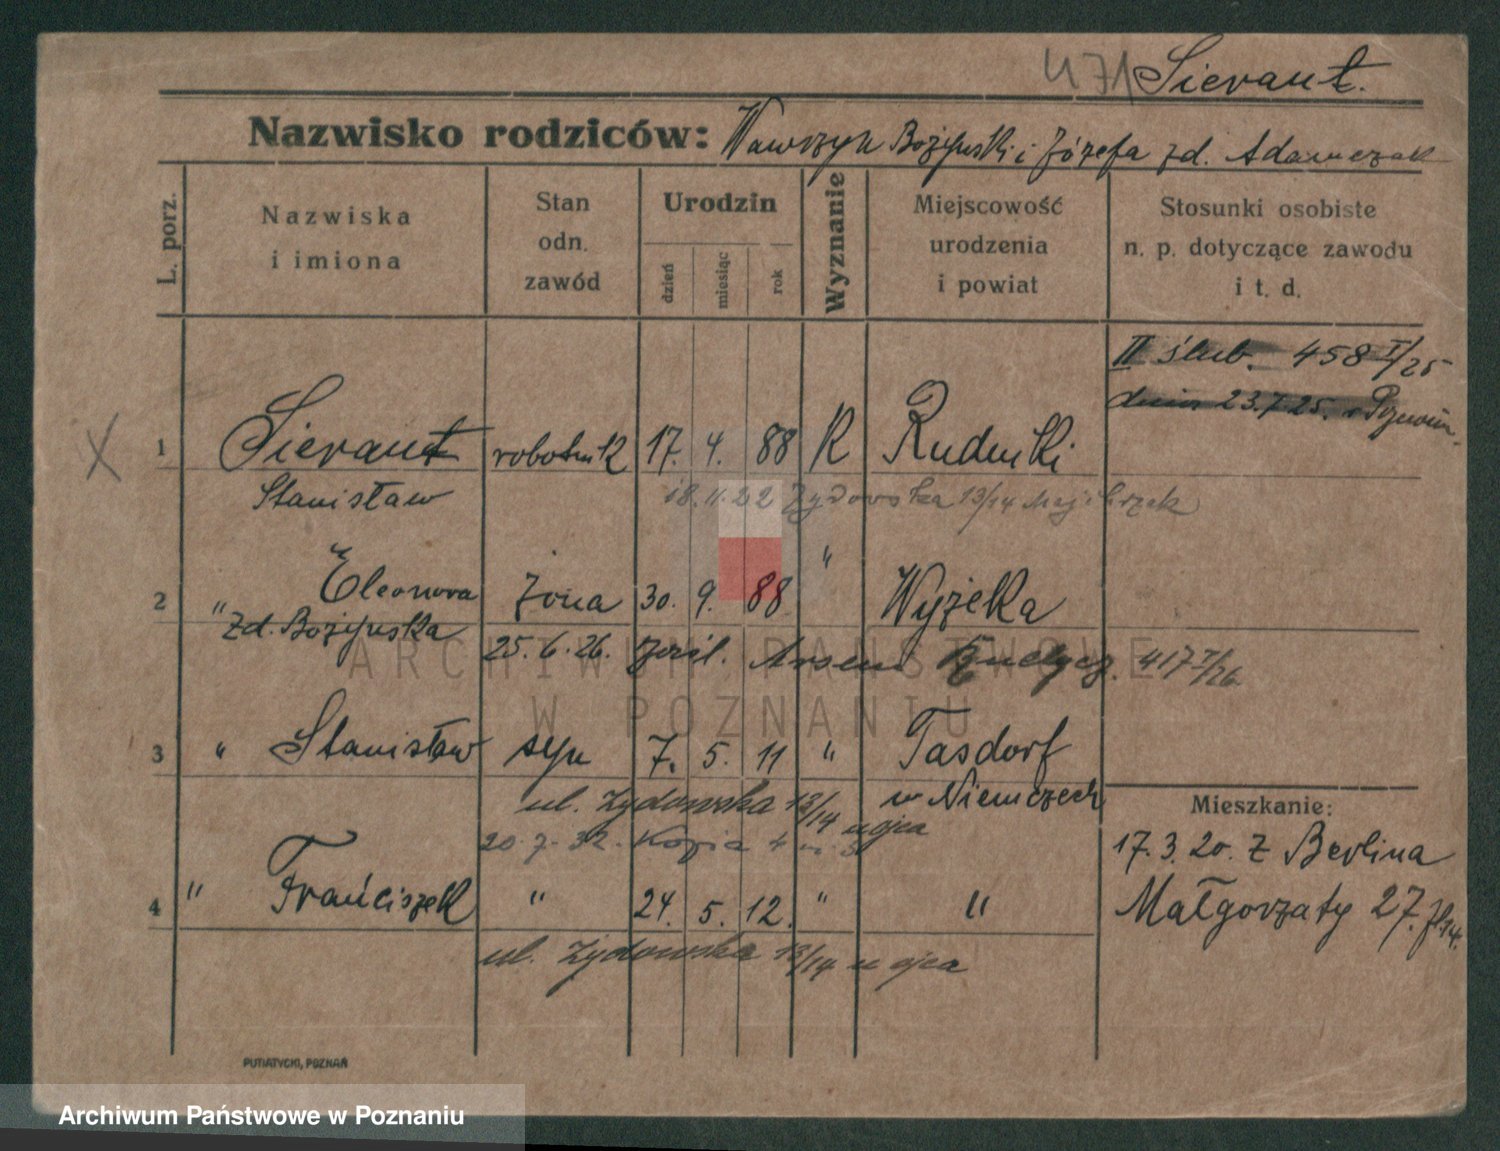 471 Sieraut.
Nazwisko rodziców: Wawrzyn Bożyński i Józefa zd. Adamczak
L. porz.
Nazwiska
i imiona
Stan
odn.
zawód
Urodzin
dzień
miesiąc
rok
Wyznanie
Miejscowość
urodzenia
i powiat
Stosunki osobiste
n. p. dotyczące zawodu
i t. d.
II ślub. 458 I/25
dnia 23.7.25.
X 1 Sieraut robotnik 17. 4. 88 R Rudniki
Stanisław
18.11.22 Żydowska 13/14
2 " Eleonora żona 30. 9. 88 " Wyżeka
zd. Bożyńska
25. 6. 26. 417 I/26
3 " Stanisław syn 7. 5. 11 " Tasdorf
w Niemczech
ul. Żydowska 13/14 u ojca
20. 7. 32. Kozia 4
4 " Franciszek " 24. 5. 12. " "
ul. Żydowska 13/14 u ojca
Mieszkanie:
17. 3. 20. z Berlina
Małgorzaty 27.
PUTIATYCKI, POZNAŃ
ARCHIWUM PAŃSTWOWE
W POZNANIU
Archiwum Państwowe w Poznaniu